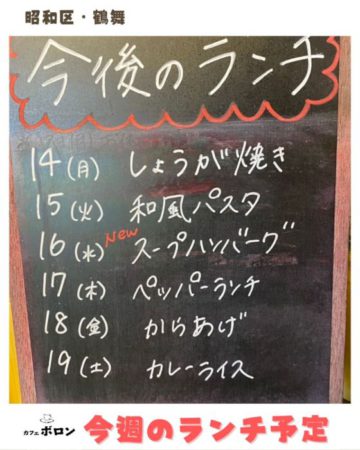 昭和区・鶴舞
今後のランチ
14(月) しょうが焼き
15(火) 和風パスタ
New
16(水) スープハンバーグ
17(木) ペッパーランチ
18(金) からあげ
19(土) カレーライス
カフェ ボロン 今週のランチ予定